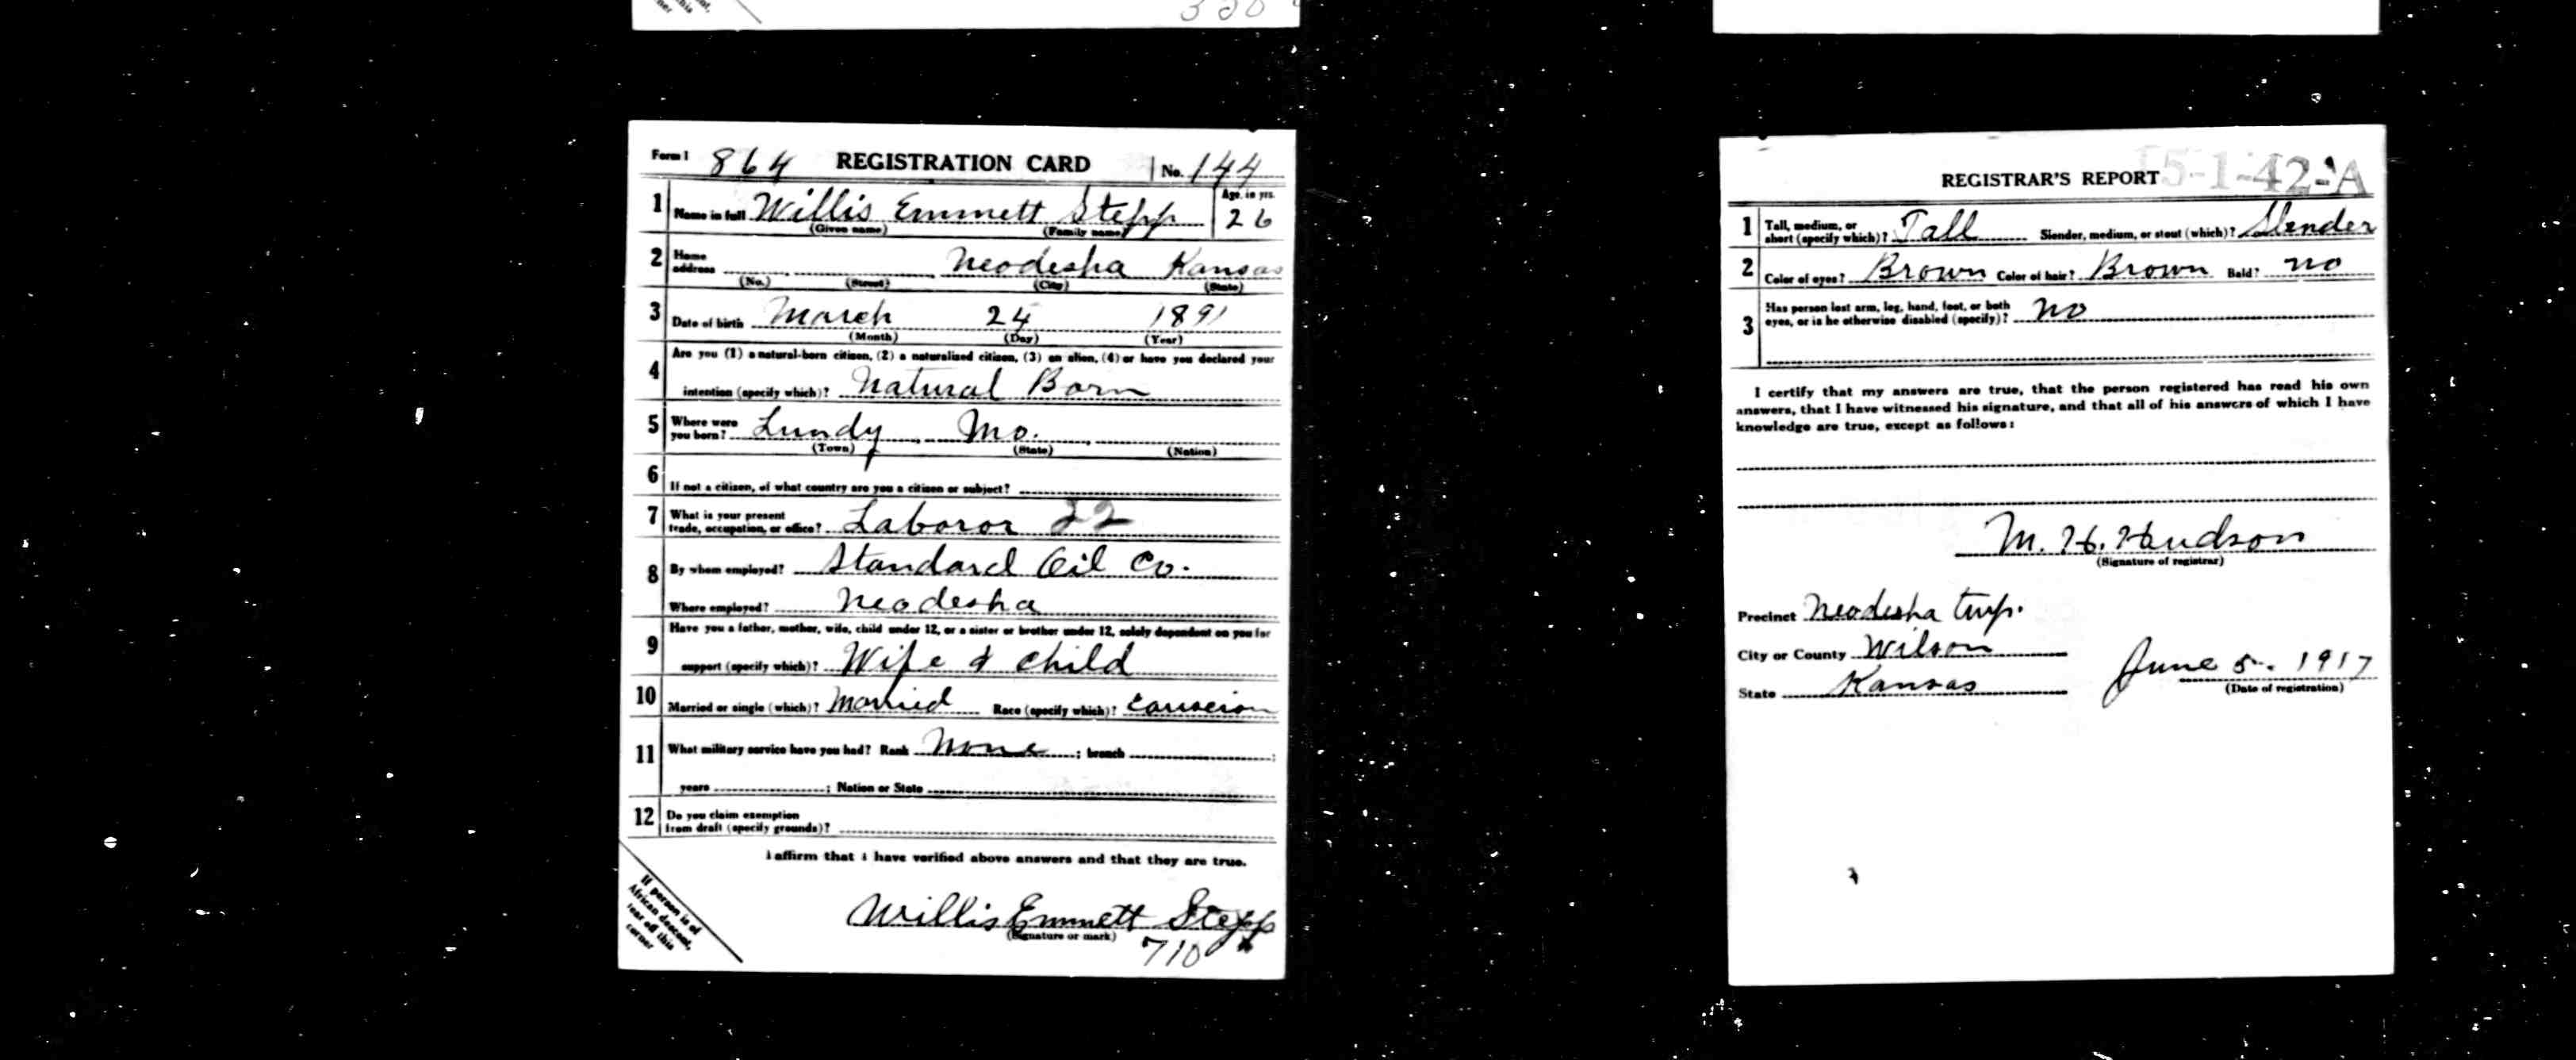 Form 1 864 REGISTRATION CARD No. 144
1 Name in full Willis Emmett Stepp Age, in yrs. 26
(Given name) (Family name)
2 Home address Neodesha Kansas
(No.) (Street) (City) (State)
3 Date of birth March 24 1891
(Month) (Day) (Year)
4 Are you (1) a natural-born citizen, (2) a naturalized citizen, (3) an alien, (4) or have you declared your
intention (specify which)? Natural Born
5 Where were you born? Lundy Mo.
(Town) (State) (Nation)
6 If not a citizen, of what country are you a citizen or subject?
7 What is your present trade, occupation, or office? Laboror 22
8 By whom employed? Standard Oil Co.
Where employed? Neodesha
9 Have you a father, mother, wife, child under 12, or a sister or brother under 12, solely dependent on you for
support (specify which)? Wife & child
10 Married or single (which)? Married Race (specify which)?
11 What military service have you had? Rank None ; branch ;
years ; Nation or State
12 Do you claim exemption from draft (specify grounds)?
I affirm that I have verified above answers and that they are true.
Willis Emmett Stepp
(Signature or mark)
710
If person is of
African descent,
tear off this
corner
REGISTRAR'S REPORT 15-1-42-A
1 Tall, medium, or short (specify which)? Tall Slender, medium, or stout (which)? Slender
2 Color of eyes? Brown Color of hair? Brown Bald? no
3 Has person lost arm, leg, hand, foot, or both
eyes, or is he otherwise disabled (specify)? no
I certify that my answers are true, that the person registered has read his own
answers, that I have witnessed his signature, and that all of his answers of which I have
knowledge are true, except as follows:
M. H. Hudson
(Signature of registrar)
Precinct Neodesha twp.
City or County Wilson
State Kansas
June 5. 1917
(Date of registration)